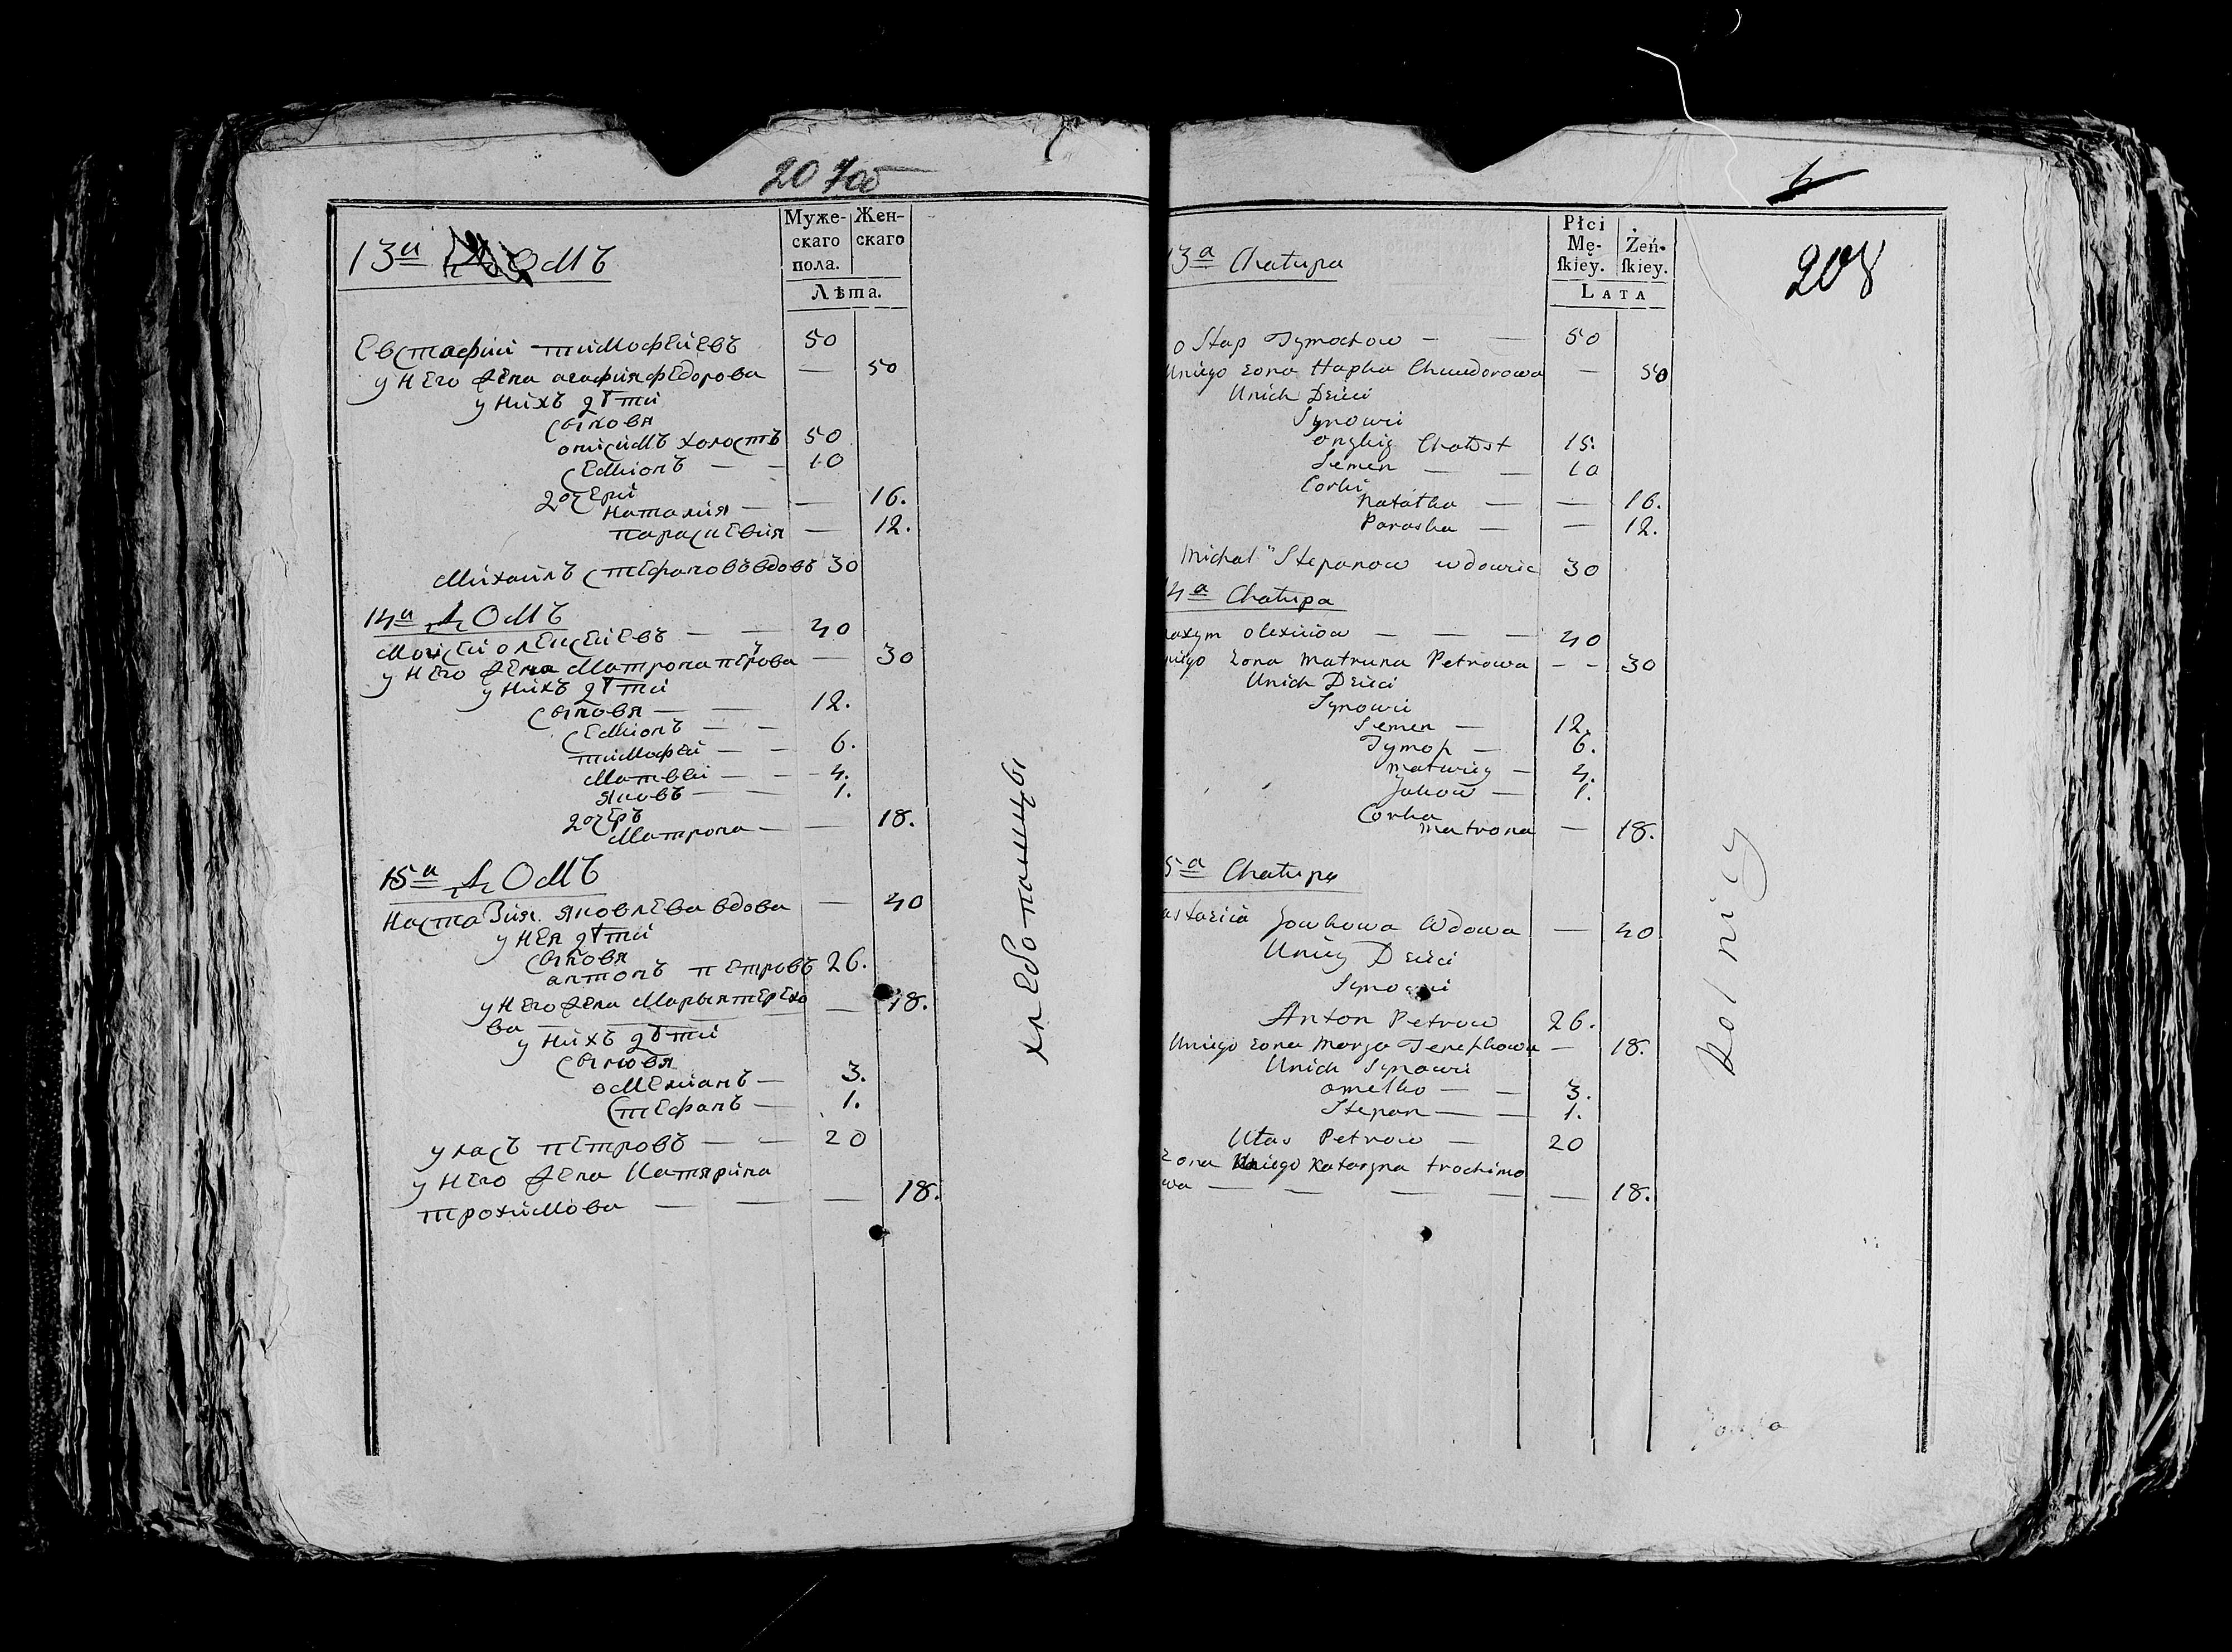 20 7об
Муже- Жен-
скаго скаго
пола.
Лѣта.
13я домъ
Евстафий тимофеиевъ 50
у него жена агафия федорова — 50
у нихъ дѣти
сыновя
онисимъ холостъ 50
семионъ — — 10
дочери
наталия — — 16.
параскевия — 12.
михаилъ стефановъ вдовъ 30
14я домъ
моисеи олексеиевъ — — 40
у него жена матрона петрова — 30
у нихъ дѣти
сыновя — — 12.
семионъ — —
тимофеи — — 6.
матвеи — — 4.
яковъ — — 1.
дочеръ
матрона — — 18.
15я домъ
настазия яковлева вдова — 40
у нея дѣти
сыновя
антонъ петровъ 26.
у него жена марыя терехо — 18.
ва
у нихъ дѣти
сыновя
омелианъ — 3.
стефанъ — 1.
уласъ петровъ — — 20
у него жена катярина
трохимова — — — 18.
хлебопашцы
Płci
Mę- Żeń-
ſkiey. ſkiey.
LATA
208
13a Chałupa
oStap Tymochow — — 50
Uniego zona Hapka Chwedorowa — 50
Unich Dzieci
Synowie
onyskiy Chołost 15.
Semen — — 10
Corki
Natałka — — 16.
Paraska — — 12.
Michał Stepanow wdowic 30
4a Chałupa
axym olexiiow — — — 40
niego zona Matruna Petrowa — - 30
Unich Dzieci
Synowie
Semen — 12.
Tymof — 6.
Matwiey — 4.
Jakow — 1.
Corka
Matrona — 18.
5a Chałupa
astazia Jowkowa Wdowa — 40
Uniey Dzieci
Synowie
Anton Petrow 26.
Uniego zona Marya Terefkowa — 18.
Unich Synowie
omelko — — 3.
Stepan — — 1.
Ułas Petrow — 20
zona Uniego Kataryna trochimo
wa — — — — — 18.
Rolnicy